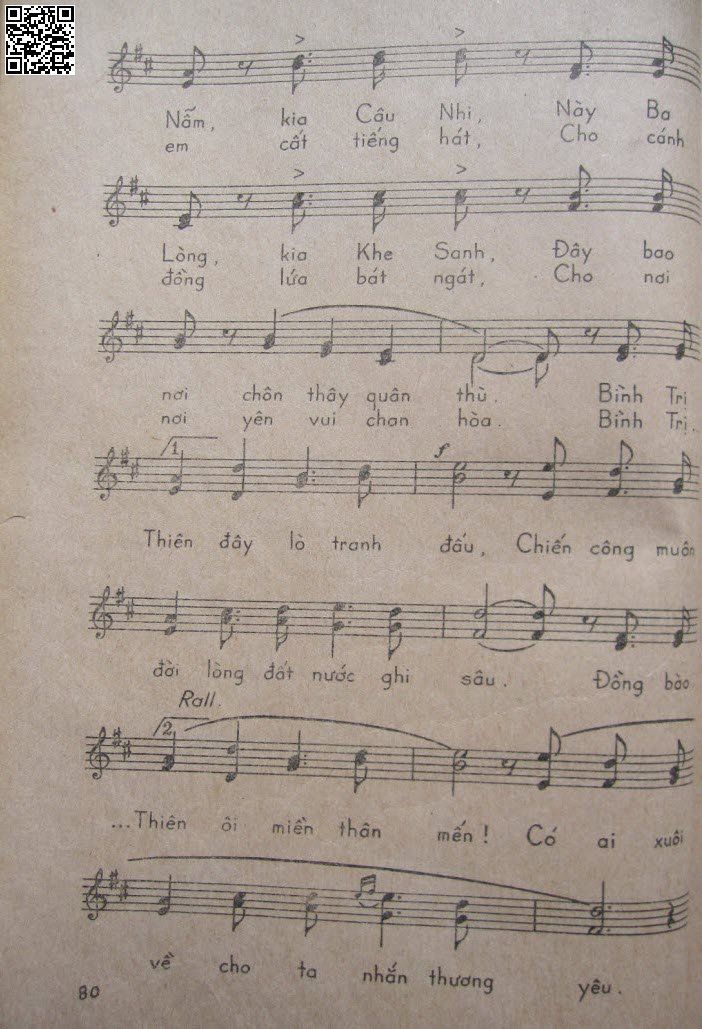 Nấm, kia Câu Nhi, Này Ba
em cất tiếng hát, Cho cánh
Lòng, kia Khe Sanh, Đây bao
đồng lúa bát ngát, Cho nơi
nơi chôn thây quân thù. Bình Trị
nơi yên vui chan hòa. Bình Trị.
1
f
Thiên đây lò tranh đấu, Chiến công muôn
đời lòng đất nước ghi sâu. Đồng bào
Rall.
2
...Thiên ôi miền thân mến! Có ai xuôi
về cho ta nhắn thương yêu.
80